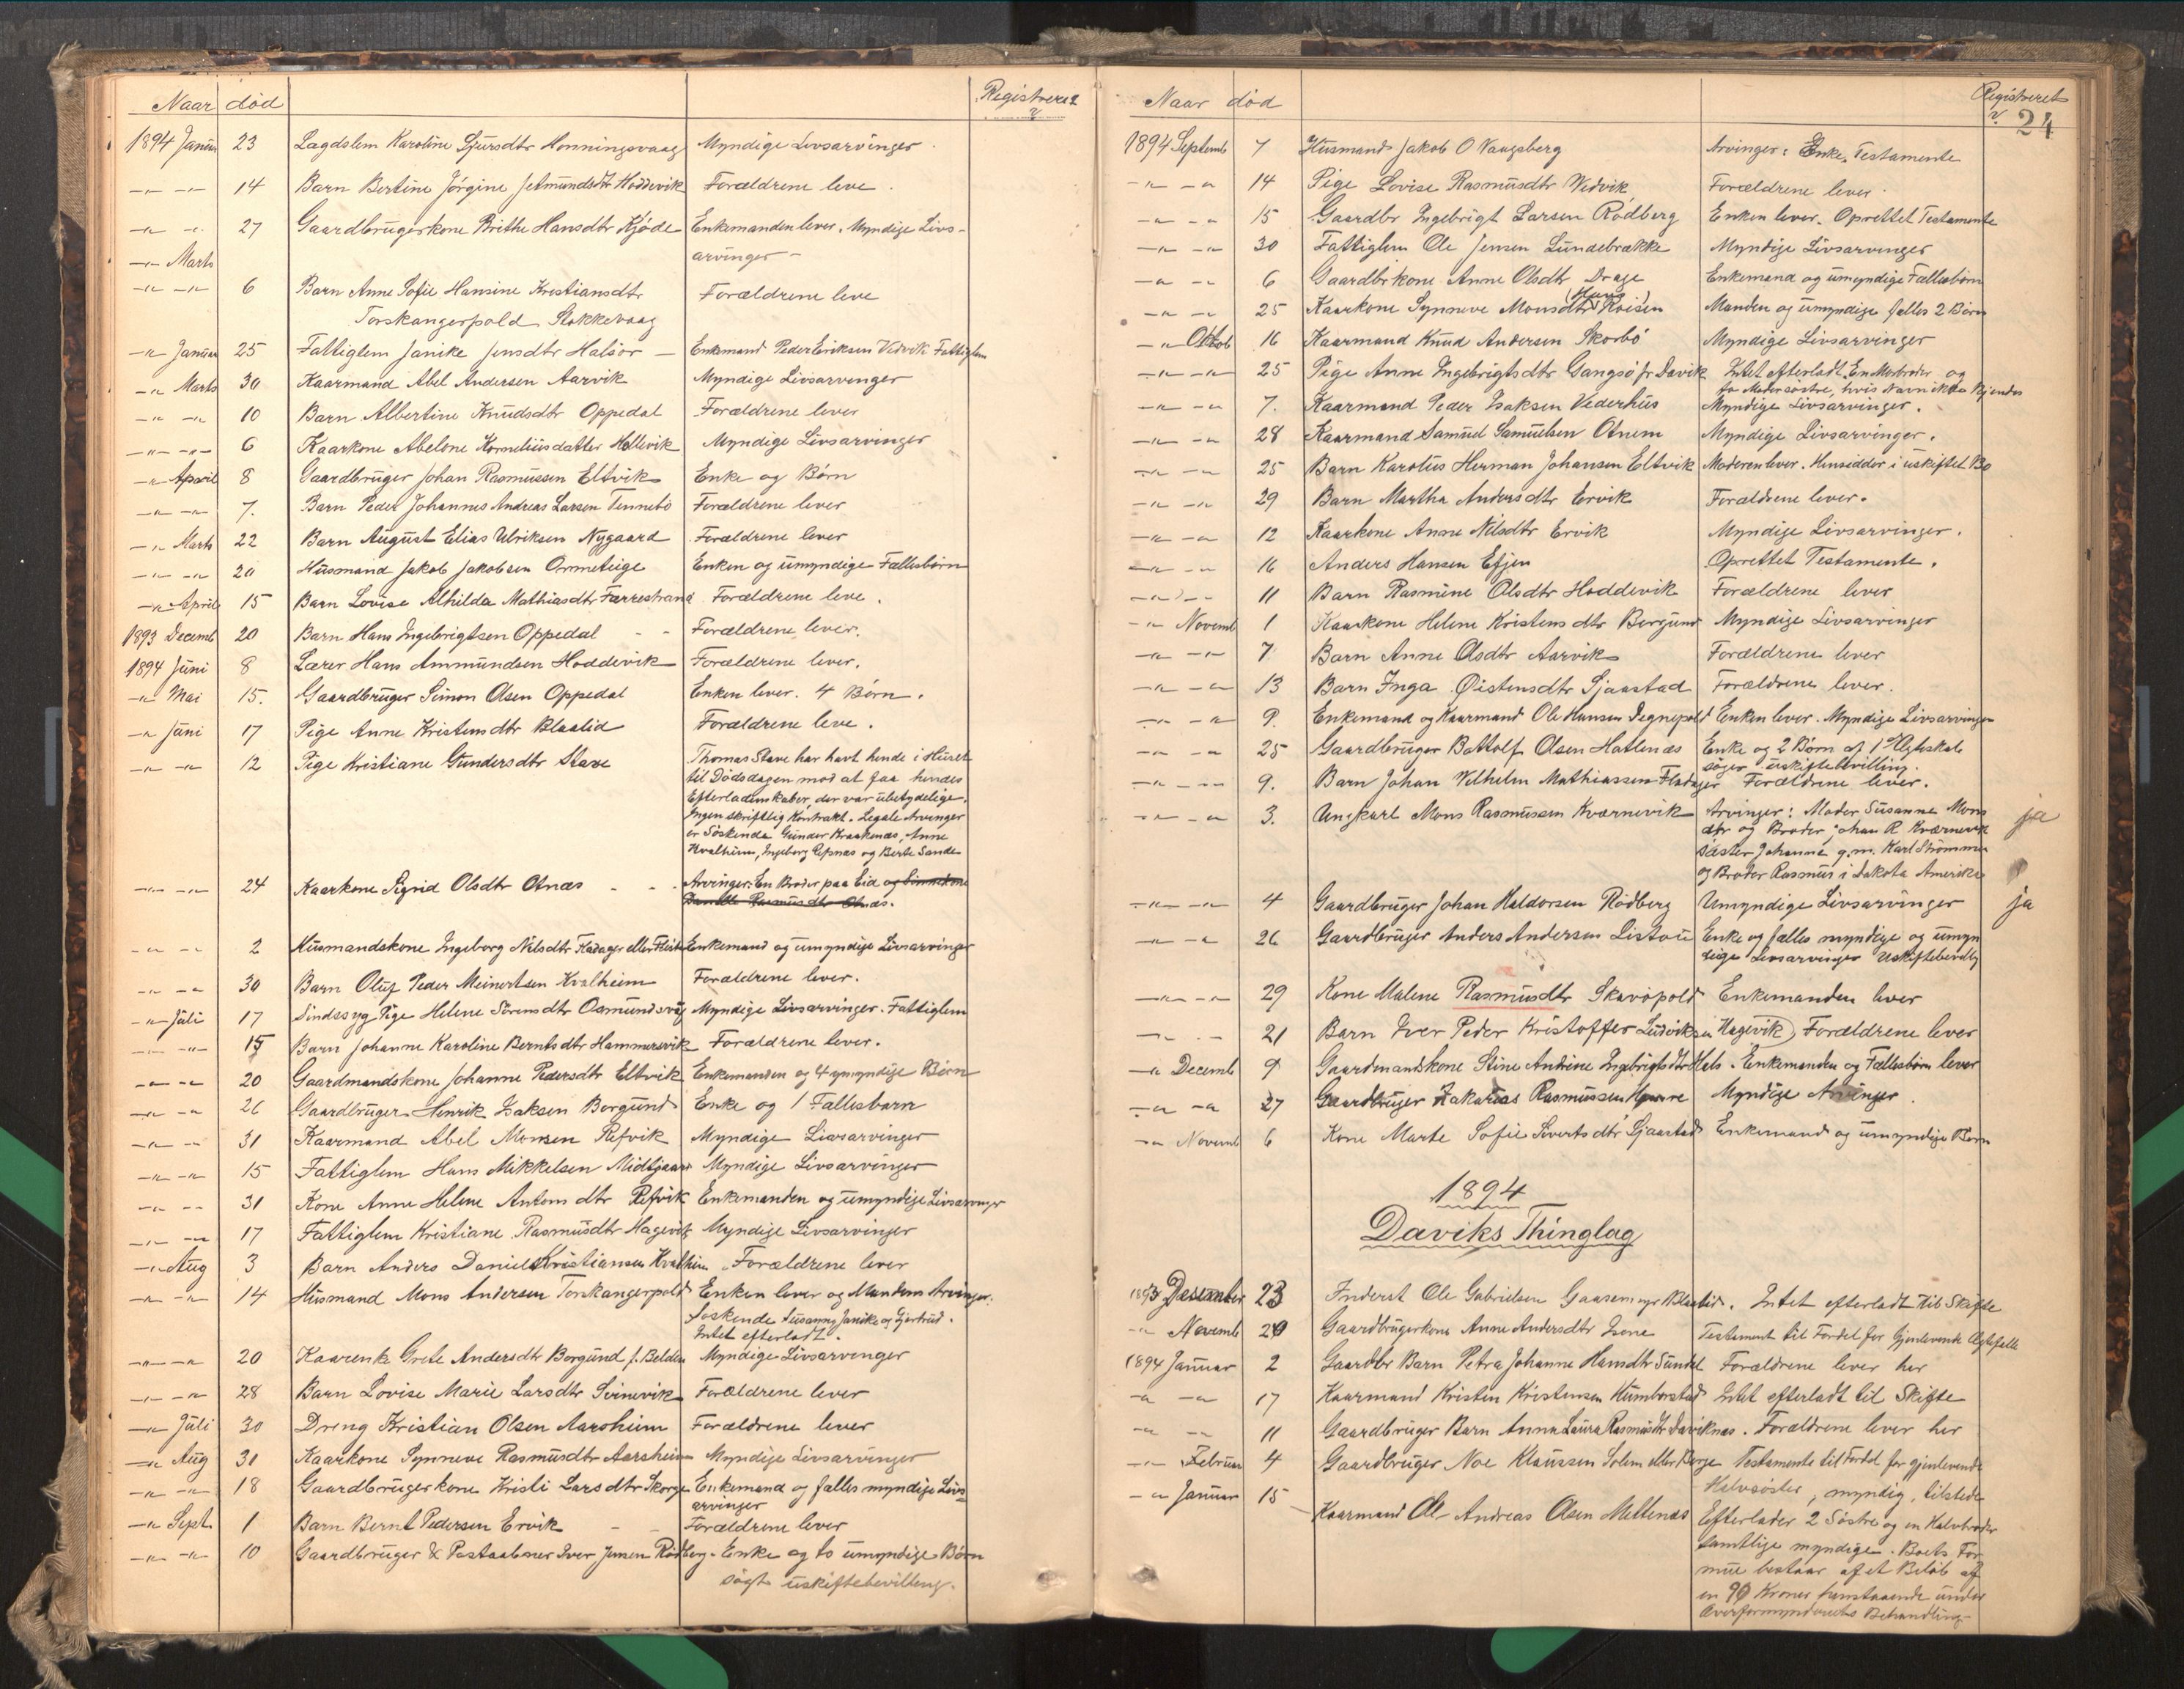 Naar død
Registreres
?
1894 Januar 23 Lægdslem Karoline Sjursdtr Honningsvaag Myndige Livsarvinger
-"- -"- 14 Barn Bertine Jörgine Jetmundsdtr Hoddevik Forældrene leve.
-"- -"- 27 Gaardbrugerkone Brithe Hansdtr Kjöde Enkemanden lever. Myndige Livs-
-"- Marts arvinger -
-"- -"- 6 Barn Anne Sofie Hansine Kristiansdtr Forældrene leve
Torskangerpold Stokkevaag
-"- Januar 25 Fattiglem Janike Jensdtr Halsör - Enkemand Peder Eriksen Vedvik Fattiglem
-"- Marts 30 Kaarmand Abel Andersen Aarvik Myndige Livsarvinger
-"- -"- 10 Barn Albertine Knudsdtr Oppedal Forældrene lever
-"- -"- 6 Kaarkone Abelone Korneliusdatter Hollevik Myndige Livsarvinger
-"- April 8 Gaardbruger Johan Rasmussen Eltvik Enke og Børn
-"- -"- 7. Barn Peder Johannes Andreas Larsen Tennebö Forældrene lever
-"- Marts 22 Barn August Elias Ulriksen Nygaard Forældrene lever
-"- -"- 20 Husmand Jakob Jakobsen Ormeteige Enken og umyndige Fællesbørn
-"- April 15 Barn Lovise Alhilda Mathiasdtr Færrestrand Forældrene leve.
1893 Decemb 20 Barn Hans Ingebrigtsen Oppedal - - Forældrene lever.
1894 Juni 8 Lærer Hans Ammundsen Hoddevik Forældrene lever.
-"- Mai 15. Gaardbruger Simon Olsen Oppedal Enken lever. 4 Børn.
-"- Juni 17 Pige Anne Kristensdtr Blaalid Forældrene leve.
-"- -"- 12 Pige Kristiane Gundersdtr Stave Thomas Stave har havt hende i Huset
til Dödsdagen mod at faa hendes
Efterladenskaber, der var ubetydelige.
Ingen skriftlig Kontrakt. Legale Arvinger
er Söskende Gunder Kraakenæs, Anne
Kvalheim, Ingeborg Refsnæs og Berte Sande
-"- -"- 24 Kaarkone Sigrid Olsdtr Otnæs - - - Arvinger: En Broder paa Eid og
Rasmusdtr Otnæs.
-"- -"- 2 Husmandskone Ingeborg Nilsdtr Fladager eller Enkemand og umyndige Livsarvinger
-"- -"- 30 Barn Oluf Peder Meinertsen Kvalheim Forældrene lever.
-"- Juli 17 Sindssyg Pige Helene Sörensdtr Osmundsvåg Myndige Livsarvinger. Fattiglem
-"- -"- 15 Barn Johanne Karoline Berntsdtr Hammersvik Forældrene lever.
-"- -"- 20 Gaardmandskone Johanne Pedersdtr Eltvik Enkemanden og 4 umyndige Børn
-"- -"- 26 Gaardbruger Henrik Isaksen Borgund Enke og 1 Fællesbarn
-"- -"- 31 Kaarmand Abel Monsen Refvik Myndige Livsarvinger
-"- -"- 15 Fattiglem Hans Mikkelsen Midtgaard Myndige Livsarvinger
-"- -"- 31 Kone Anne Helene Antonsdtr Refvik Enkemanden og umyndige Livsarvinger
-"- -"- 17 Fattiglem Kristiane Rasmusdtr Hagevik Myndige Livsarvinger
-"- Aug 3 Barn Anders Daniel Kristiansen Kvalheim Forældrene lever
-"- -"- 14 Husmand Mons Andersen Torskangerpold Enken lever og Mandens Arvinger:
Søskende Susanna, Janike og Gjertrud.
Intet efterladt.
-"- -"- 20 Kaarenke Grete Andersdtr Borgund f. Belden Myndige Livsarvinger
-"- -"- 28 Barn Lovise Marie Larsdtr Sirnevik Forældrene lever
-"- Juli 30 Dreng Kristian Olsen Aaroheim Forældrene lever
-"- Aug 31 Kaarkone Synneve Rasmusdtr Aarsheim Myndige Livsarvinger
-"- -"- 18 Gaardbrugerkone Kristi Larsdtr Skorge Enkemand og fælles myndige Livs-
arvinger
-"- Sept. 1 Barn Bernt Pedersen Ervik - - Forældrene lever
-"- -"- 10 Gaardbruger & Postaabner Iver Jensen Rødberg. Enke og to umyndige Børn
søgt uskiftebevilling.
Naar død
Registreret
? 24
1894 Septemb 7 Husmand Jakob O Vaagsberg Arvinger: Enke, Testamente
-"- -"- 14 Pige Lovise Rasmusdtr Vedvik Forældrene lever.
-"- -"- 15 Gaardbr Ingebrigt Larsen Rödberg Enken lever. Oprettet Testamente
-"- -"- 30 Fattiglem Ole Jensen Lundebrække Myndige Livsarvinger
-"- -"- 6 Gaardbrkone Anne Olsdtr Drage Enkemand og umyndige Fællesbørn
-"- -"- 25 Kaarkone Synneve Monsdtr Manden og umyndige fælles 2 Børn
-"- Oktob 16 Kaarmand Knud Andersen Skorbö Myndige Livsarvinger
-"- -"- 25 Pige Anne Ingebrigtsdtr Gangsö fr Davik Intet efterladt. En Morbroder og
to Modersøstre, hvis Navn ikke kjendes
-"- -"- 7. Kaarmand Peder Isaksen Vederhus Myndige Livsarvinger.
-"- -"- 28 Kaarmand Samuel Samuelsen Otnem Myndige Livsarvinger.
-"- -"- 25 Barn Karolus Herman Johansen Eltvik Moderen lever. Hensidder i uskiftet Bo
-"- -"- 29 Barn Martha Andersdtr Ervik Forældrene lever.
-"- -"- 12 Kaarkone Anne Nilsdtr Ervik Myndige Livsarvinger.
-"- -"- 16 Anders Hansen Efjen Oprettet Testamente.
-"- -"- 11 Barn Rasmine Olsdtr Hoddevik Forældrene lever
-"- Novemb 1 Kaarkone Helene Kristensdtr Borgund Myndige Livsarvinger
-"- -"- 7 Barn Anne Olsdtr Aarvik Forældrene lever
-"- -"- 13 Barn Inga Øistensdtr Sjaastad Forældrene lever.
-"- -"- 9. Enkemand og Kaarmand Ole Hansen Degnepold Enken lever. Myndige Livsarvinger
-"- -"- 25 Gaardbruger Battolf Olsen Hatlenæs Enke og 2 Børn af 1ste Ægteskab
søger uskiftebevilling.
-"- -"- 9. Barn Johan Vilhelm Mathiassen Fladager Forældrene lever.
-"- -"- 3. Ungkarl Mons Rasmussen Kværnevik Arvinger: Moder Susanne Mons ja
dtr og Broder Johan R Kværnevik
Søster Johanne g.m. Karl Strømmen
og Broder Rasmus i Dakota Amerika
-"- -"- 4 Gaardbruger Johan Haldorsen Rödberg Umyndige Livsarvinger ja
-"- -"- 26 Gaardbruger Anders Andersen Listou Enke og fælles myndige og umyn
dige Livsarvinger Uskiftebevillg
-"- -"- 29 Kone Malene Rasmusdtr Skavöpold Enkemanden lever
-"- -"- 21 Barn Iver Peder Kristoffer Ludviksen Hagevik) Forældrene lever
-"- Decemb 9 Gaardmandskone Stine Andrine Ingebrigtsdtr Hals. Enkemanden og Fællesbørn lever
-"- -"- 27 Gaardbruger Zakarias Rasmussen Myndige Arvinger.
-"- Novemb 6 Kone Marte Sofie Sivertsdtr Sjaastad Enkemand og umyndige Børn
1894
Daviks Thinglag
1893 Desember 23 Inderst Ole Gabrielsen Gaasemyr Blaalid. Intet efterladt til Skifte
-"- Novemb 20 Gaardbrugerkone Anne Andersdtr Isene Testament til Fordel for Gjenlevende Ægtefælle
1894 Januar 2 Gaardbr Barn Petra Johanne Hansdtr Sundal Forældrene lever her
-"- -"- 17 Kaarmand Kristen Kristensen Humborstad Intet efterladt til Skifte
-"- -"- 11 Gaardbruger Barn Anna Laura Rasmusdtr Daviknæs. Forældrene lever her
-"- Februar 4 Gaardbruger Noe Klaussen Solem eller Berge Testamente til Fordel for gjenlevende
Halvsøster, myndig, tilstede
-"- Januar 15 Kaarmand Ole Andreas Olsen Mellenæs Efterlader 2 Søstre og en Halvbroder
samtlige myndige. Boets For
mue bestaar af et Beløb af
en 90 Kroner henstaaende under
Overformynderiets Behandling-